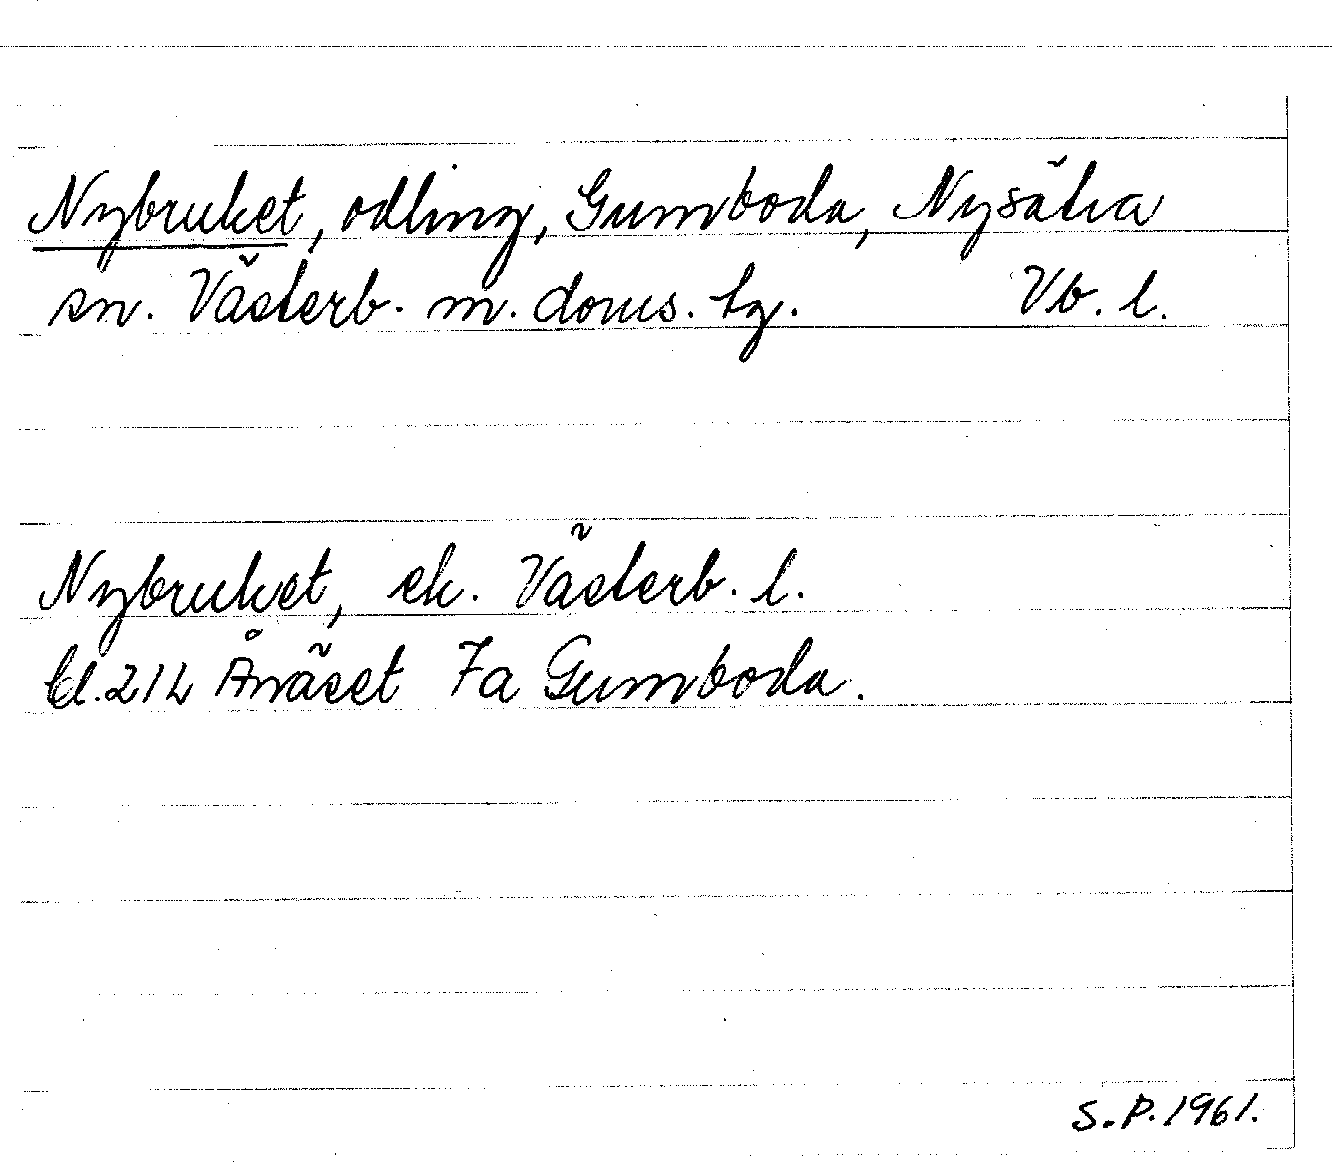 Nybruket, odling, Gumboda, Nysätra
sn. Västerb. m. doms. tg. Vb. l.
Nybruket, ek. Västerb. l.
bl. 21L Ånäset 7a Gumboda.
S.P. 1961.